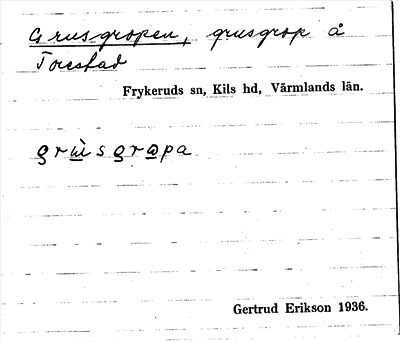 Grusgropen, grusgrop å
Torestad
Frykeruds sn, Kils hd, Värmlands län.
grùsgrɷpa
Gertrud Erikson 1936.